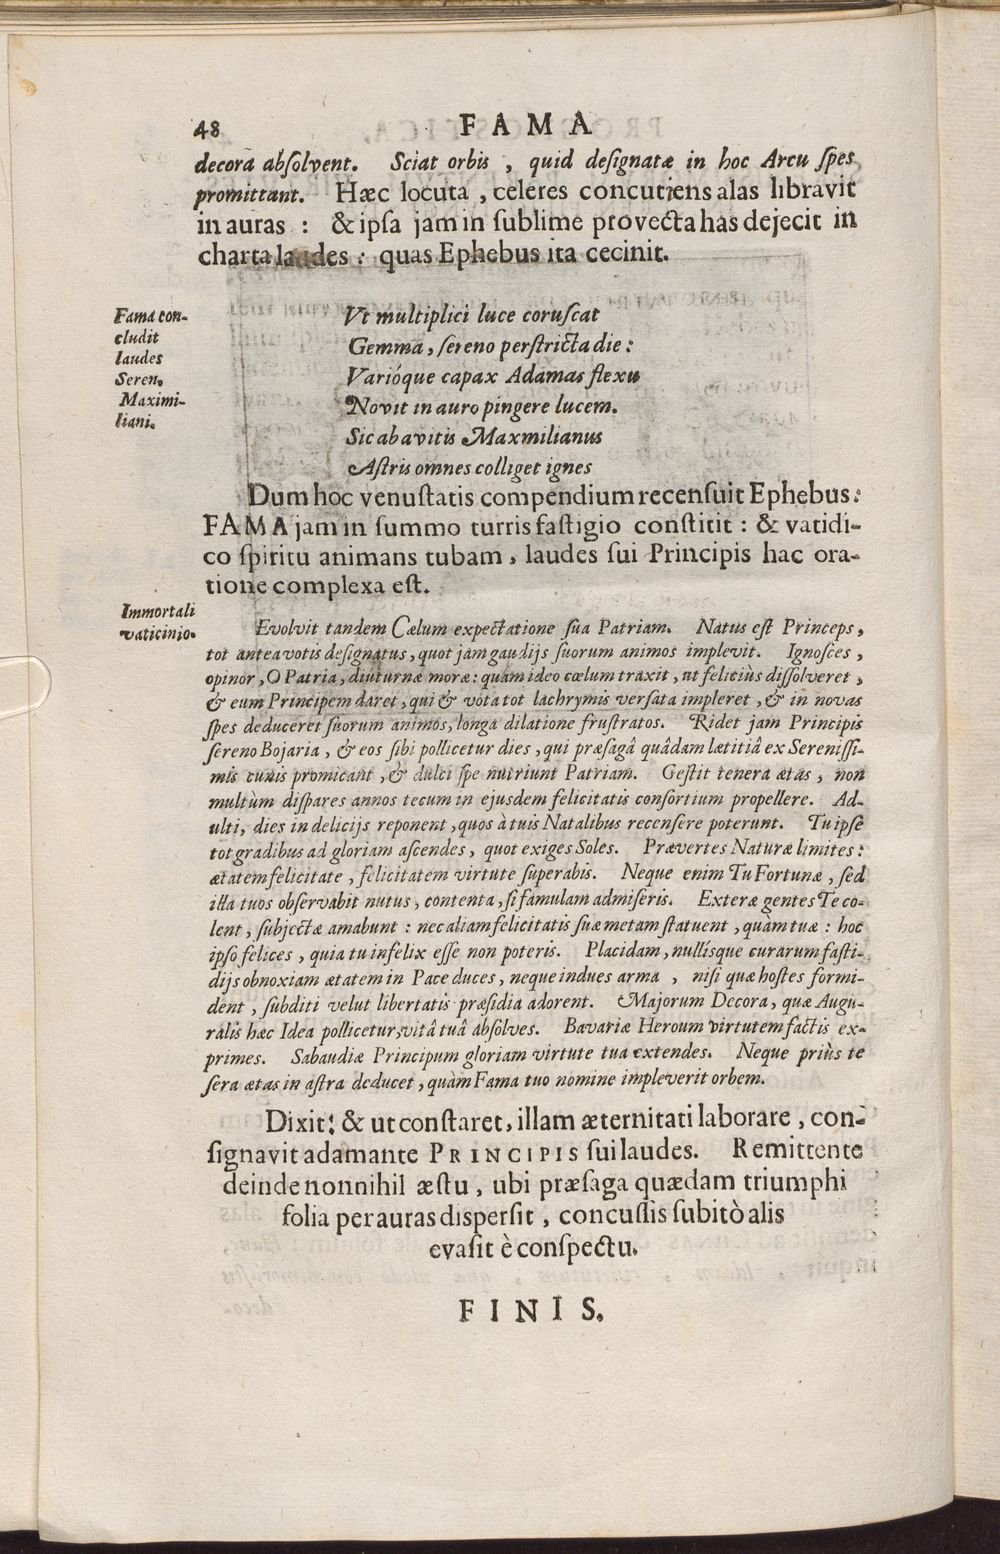 48 FAMA
decora absolvent. Sciat orbis, quid designatæ in hoc Arcu spes
promittant. Hæc locuta, celeres concutiens alas libravit
in auras: & ipsa jam in sublime provecta has dejecit in
charta laudes: quas Ephebus ita cecinit.
Fama con-
cludit
laudes
Seren.
Maximi-
liani.
Vt multiplici luce coruscat
Gemma, sereno perstricta die:
Varióque capax Adamas flexu
Novit in auro pingere lucem.
Sic ab avitis Maxmilianus
Astris omnes colliget ignes
Dum hoc venustatis compendium recensuit Ephebus:
FAMA jam in summo turris fastigio constitit: & vatidi-
co spiritu animans tubam, laudes sui Principis hac ora-
tione complexa est.
Immortali
vaticinio.
Evolvit tandem Cælum expectatione sua Patriam. Natus est Princeps,
tot antea votis designatus, quot jam gaudijs suorum animos implevit. Ignosces,
opinor, O Patria, diuturnæ moræ: quam ideo cœlum traxit, ut feliciùs dissolveret,
& eum Principem daret, qui & vota tot lachrymis versata impleret, & in novas
spes deduceret suorum animos, longa dilatione frustratos. Ridet jam Principis
sereno Bojaria, & eos sibi pollicetur dies, qui præsagâ quâdam lætitiâ ex Serenissi-
mis cunis promicant, & dulci spe nutriunt Patriam. Gestit tenera ætas, non
multùm dispares annos tecum in ejusdem felicitatis consortium propellere. Ad-
ulti, dies in delicijs reponent, quos à tuis Natalibus recensere poterunt. Tu ipse
tot gradibus ad gloriam ascendes, quot exiges Soles. Prævertes Naturæ limites:
ætatem felicitate, felicitatem virtute superabis. Neque enim Tu Fortunæ, sed
illa tuos observabit nutus, contenta, si famulam admiseris. Exteræ gentes Te co-
lent, subjectæ amabunt: nec aliam felicitatis suæ metam statuent, quàm tuæ: hoc
ipso felices, quia tu infelix esse non poteris. Placidam, nullísque curarum fasti-
dijs obnoxiam ætatem in Pace duces, neque indues arma, nisi quæ hostes formi-
dent, subditi velut libertatis præsidia adorent. Majorum Decora, quæ Augu-
ralis hæc Idea pollicetur, vitâ tuâ absolves. Bavariæ Heroum virtutem factis ex-
primes. Sabaudiæ Principum gloriam virtute tua extendes. Neque priùs te
sera ætas in astra deducet, quàm Fama tuo nomine impleverit orbem.
Dixit: & ut constaret, illam æternitati laborare, con-
signavit adamante PRINCIPIS sui laudes. Remittente
deinde nonnihil æstu, ubi præsaga quædam triumphi
folia per auras dispersit, concussis subitò alis
evasit è conspectu.
FINIS.